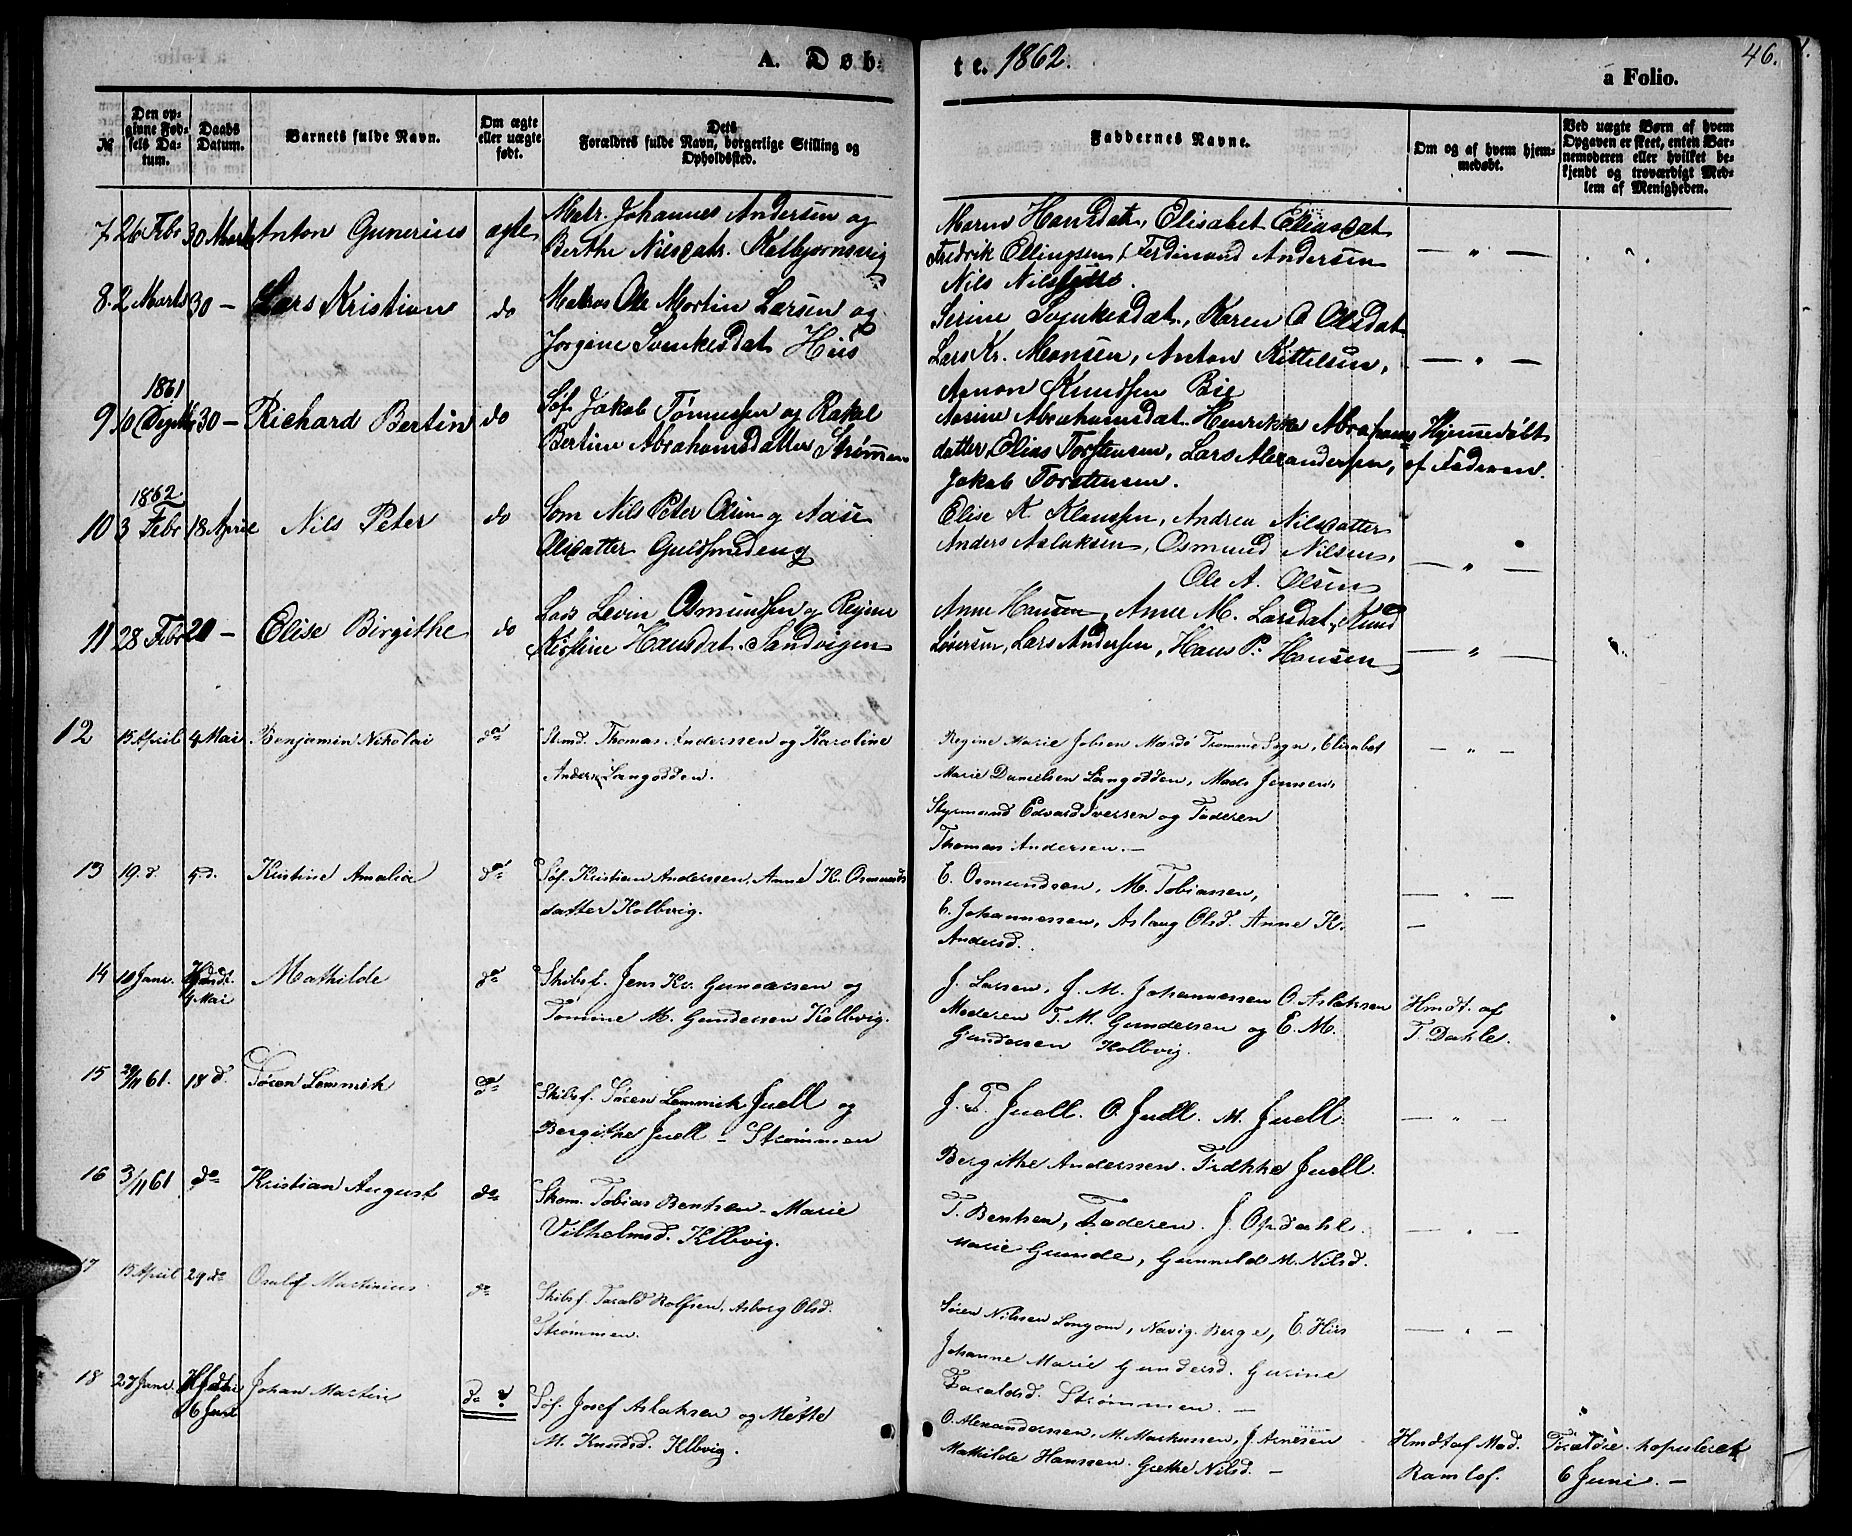 A. Døb-
te. 1862.
a Folio.
46.
№
Den op-
givne Fød-
sels Da-
tum.
Daabs
Datum.
Barnets fulde Navn.
Om ægte
eller uægte
født.
Dets
Forældres fulde Navn, borgerlige Stilling og
Opholdssted.
Faddernes Navne.
Om og af hvem hjem-
medøbt.
Ved uægte Børn af hvem
Opgaven er skeet, enten Bar-
nemoderen eller hvilket be-
kjendt og troværdigt Med-
lem af Menigheden.
7 26 Febr 30 Marts Anton Gunerius ægte
Matr. Johannes Andersen og
Berthe Nilsdatr. Kolbjørnsvig
Maren Hansdatr, Elisabet Eliasdat
Fredrik Ellingsen, Ferdinand Andersen
Nils Nils
8. 2 Marts 30 - Lars Kristian do
Matros Ole Martin Larsen og
Jorgine Svenkesdat Hiis
Serine Svenkesdat, Karen O Olsdat
Lars Kr. Monsen, Anton Kittelsen,
Aanon Knudsen Bie
1861
9 10 Septbr 30 - Richard Bertin do
Søf. Jakob Tønnessen og Rakel
Bertine Abrahamsdatter Strømmen
Aasine Abrahamsdat. Henrikke Abrahams
datter Elias Torstensen, Lars Alexandersen,
Jakob Torstensen.
Hjemmedøbt
af Faderen.
1862
10 3 Febr 18 April Nils Peter do
Søm Nils Peter Olsen og Aase
Olsdatter Guldsmedeng
Elise K. Klausen, Andrea Nilsdatter
Anders Aslaksen, Osmund Nilsen,
Ole A. Olsen
11 28 Febr 20 - Elise Birgithe do
Lods Levin Osmundsen og Regine
Kirstine Hansdat. Sandvigen
Anne Hansen, Anne M. Larsdat, Knud
Lars Andersen, Hans P. Hansen
12 15 April 4 Mai Benjamin Nikolai do
Strmd. Thomas Anderssen og Karoline
Anders. Langodden.
Regine Marie Jobsen Mærdø Tromme Sogn, Elisabet
Marie Danielsen Langodden, Mads Jensen,
Styrmand Edvard Iversen og Faderen
Thomas Andersen. -
13 19. d. 4 d. Kristine Amalia do
Søf. Kristian Anderssen, Anne K. Osmunds
datter Kolbvig.
E. Osmundsen, M. Tobiassen,
E. Johannessen, Aslaug Olsd. Anne K.
Andersd.
14 10 Janr. 4 Mai Mathilde do
Skibsf. Jens Kr. Gundersen og
Tomine M. Gundersen Kolbvig.
J. Larsen, J. M. Johannessen O. Aslaksen
Moderen T. M. Gundersen og E. M.
Gundersen Kolbvig.
Hmdt. af
T. Dahle.
15 29/11 61. 18 d. Søren Lemmik do
Skibsf. Søren Lemmik Juell og
Bergithe Juell - Strømmen
J. T. Juell. O. Juell. M. Juell.
Bergithe Anderssen. Fredikke Juell.
16 3/11 61 do Kristian August do
Skom. Tobias Bentsen - Marie
Vilhelmsd. Klbvig.
T. Bentsen, Faderen. J. Opdahl.
Marie Gunde, Gunnild M. Nilsd.
17 15 April 29 do Osulf Martinius do
Skibsf. Tarald Rolfsen, Asborg Olsd.
Strømmen.
Søren Nilssen Longom, Navig. Berge, E. Hiis
Johanne Marie Gundersd. Gurine
Taraldsd. Strømmen. -
18 27 Janr. 6 Juni Johan Martin do
Søf. Josef Aslaksen og Mette
M. Knudsd. Klbvig.
O. Alexanderssen, M. Markussen, J. Arnesen
Mathilde Hanssen. Grethe Nilsd. -
Hmdt af Mad.
Ramlof.
Forældre kopuleret
6 Juni. -